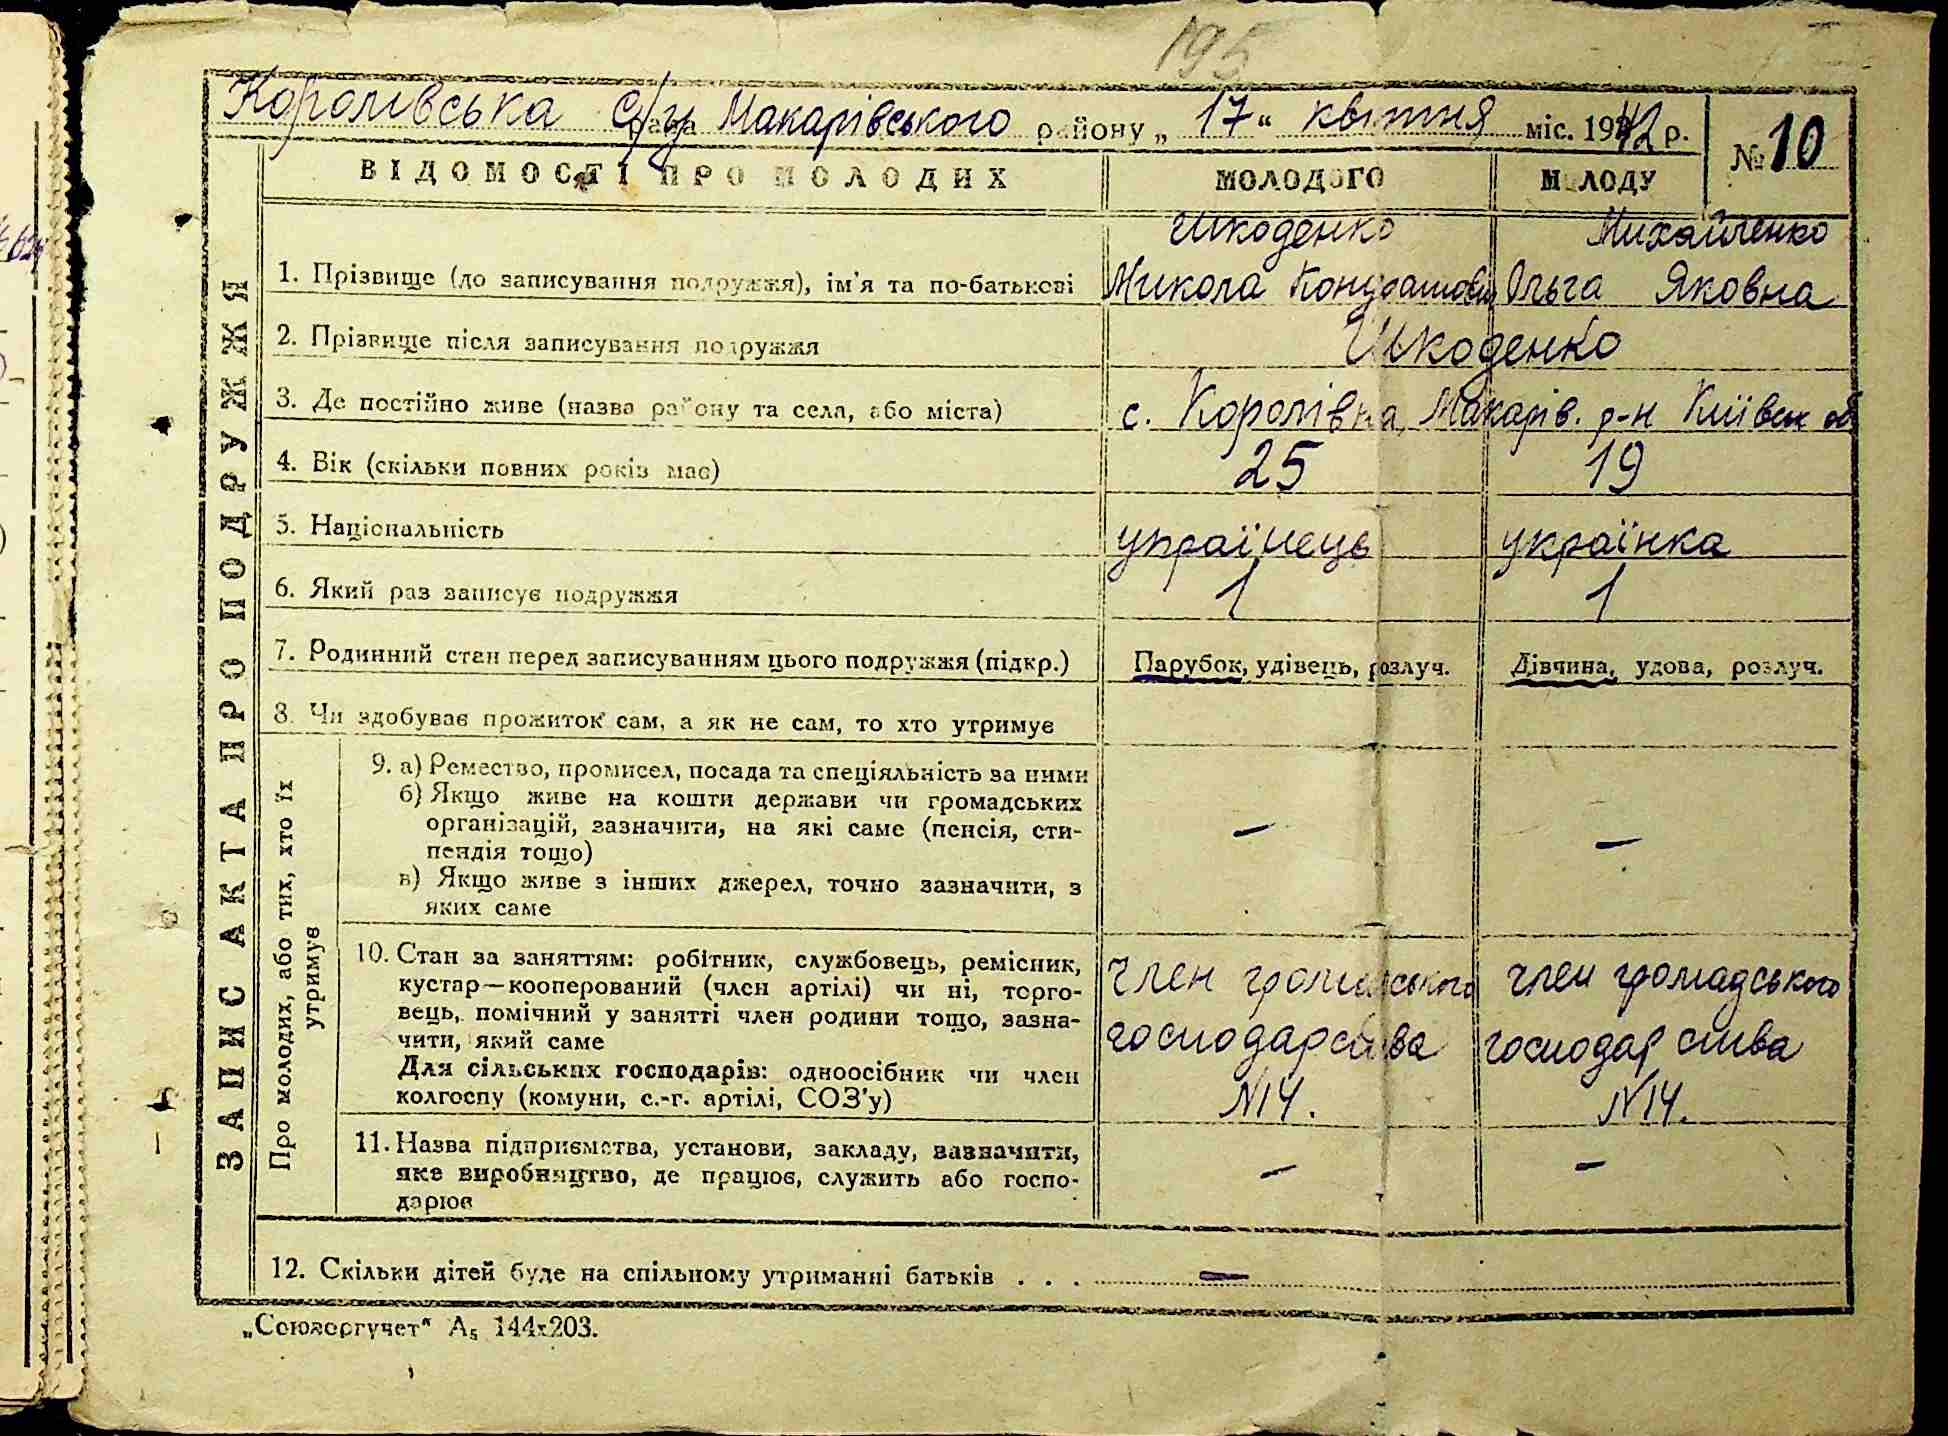 195
Королівська с/у рада Макарівського району „ 17 “ квітня міс. 1942 р.
№ 10
ВІДОМОСТІ ПРО МОЛОДИХ МОЛОДОГО МОЛОДУ
ЗАПИС АКТА ПРО ПОДРУЖЖЯ
Шкоденко Михайленко
1. Прізвище (до записування подружжя), ім'я та по-батькові Микола Кондратович Ольга Яковна
2. Прізвище після записування подружжя Шкоденко
3. Де постійно живе (назва району та села, або міста) с. Королівка, Макарів. р-н Київськ об
4. Вік (скільки повних років має) 25 19
5. Національність українець українка
6. Який раз записує подружжя 1 1
7. Родинний стан перед записуванням цього подружжя (підкр.) Парубок, удівець, розлуч. Дівчина, удова, розлуч.
8. Чи здобуває прожиток сам, а як не сам, то хто утримує
Про молодих, або тих, хто їх
утримує
9. а) Ремество, промисел, посада та спеціяльність за ними
б) Якщо живе на кошти держави чи громадських
організацій, зазначити, на які саме (пенсія, сти-
пендія тощо) – –
в) Якщо живе з інших джерел, точно зазначити, з
яких саме
10. Стан за заняттям: робітник, службовець, ремісник,
кустар—кооперований (член артілі) чи ні, торго-
вець, помічний у занятті член родини тощо, зазна-
чити, який саме
Для сільських господарів: одноосібник чи член
колгоспу (комуни, с.-г. артілі, СОЗ'у)
член громадського
господарства
N14.
член громадського
господарства
N14.
11. Назва підприємства, установи, закладу, зазначити,
яке виробництво, де працює, служить або госпо-
дарює – –
12. Скільки дітей буде на спільному утриманні батьків . . . –
„Союзоргучет“ А₅ 144х203.